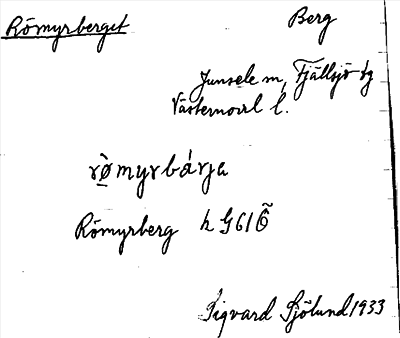 Römyrberget Berg
Junsele sn, Fjällsjö tg
Västernorrl l.
rö̀myrbárja
Römyrberg h G61Ö
Sigvard Sjölund 1933